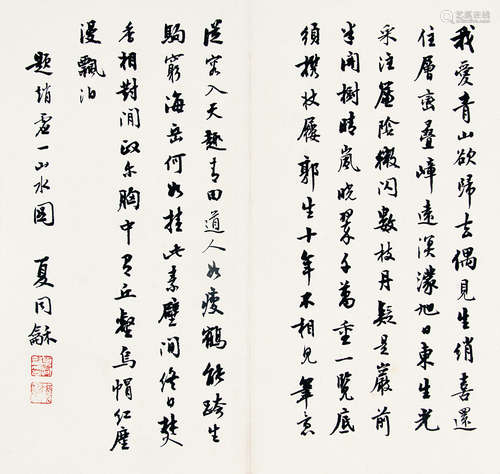 我愛青山欲歸去偶見生綃喜還
住層巒疊嶂遠溟濛旭日東生光
采注陰閃數枝丹疑是巖前
半開樹晴嵐晚翠千萬重一覽底
須攜杖屨郭生十年不相見筆意
從容入天趣青田道人如瘦鶴能跨生
駒窮海岳何如挂此素壁間終日焚
香相對閒政爾胸中有丘壑烏帽紅塵
漫飄泊
題趙虛一山水圖 夏同龢